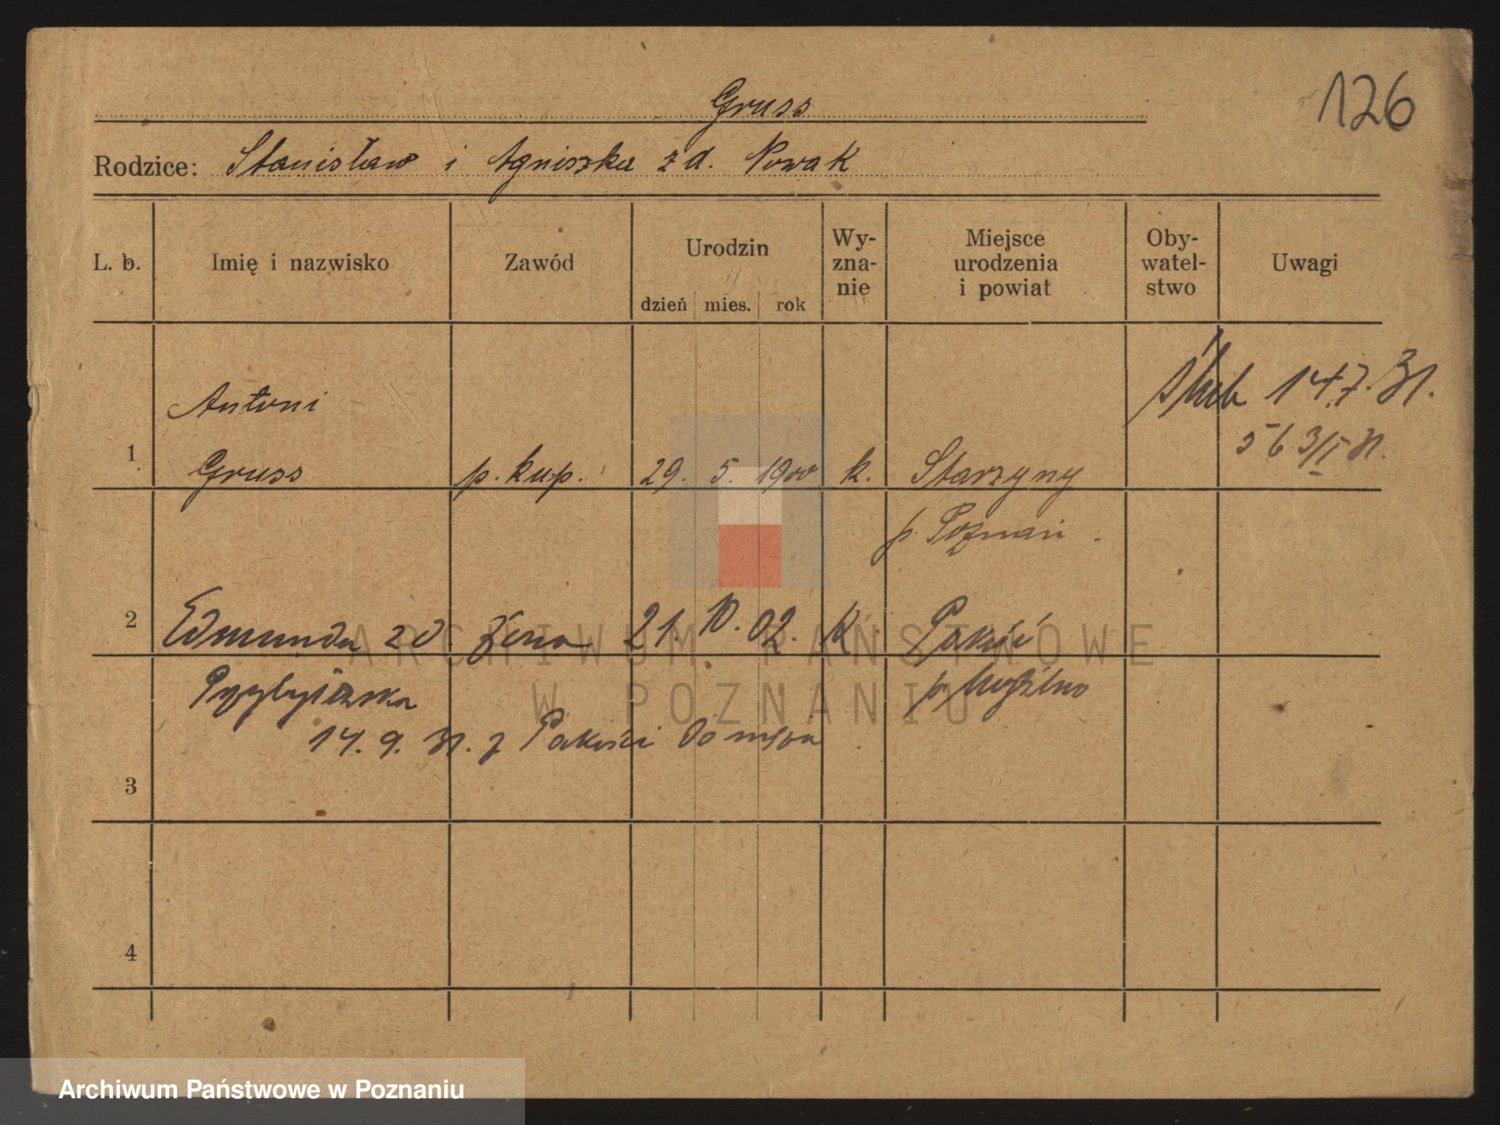 126
Gruss
Rodzice: Stanisław i Agniszka z d. Nowak
L. b. Imię i nazwisko Zawód Urodzin dzień mies. rok Wy-zna-nie Miejsce urodzenia i powiat Oby-watel-stwo Uwagi
Antoni ślub 14.7.31.
1 Gruss p. kup. 29. 5. 1900 k. Starzyny
p. Poznań.
2 Edmunda zd żona 21. 10. 02. K Pakość
p Mogilno
14. 9. 31. z Pakości
3
4
ARCHIWUM PAŃSTWOWE
W POZNANIU
Archiwum Państwowe w Poznaniu